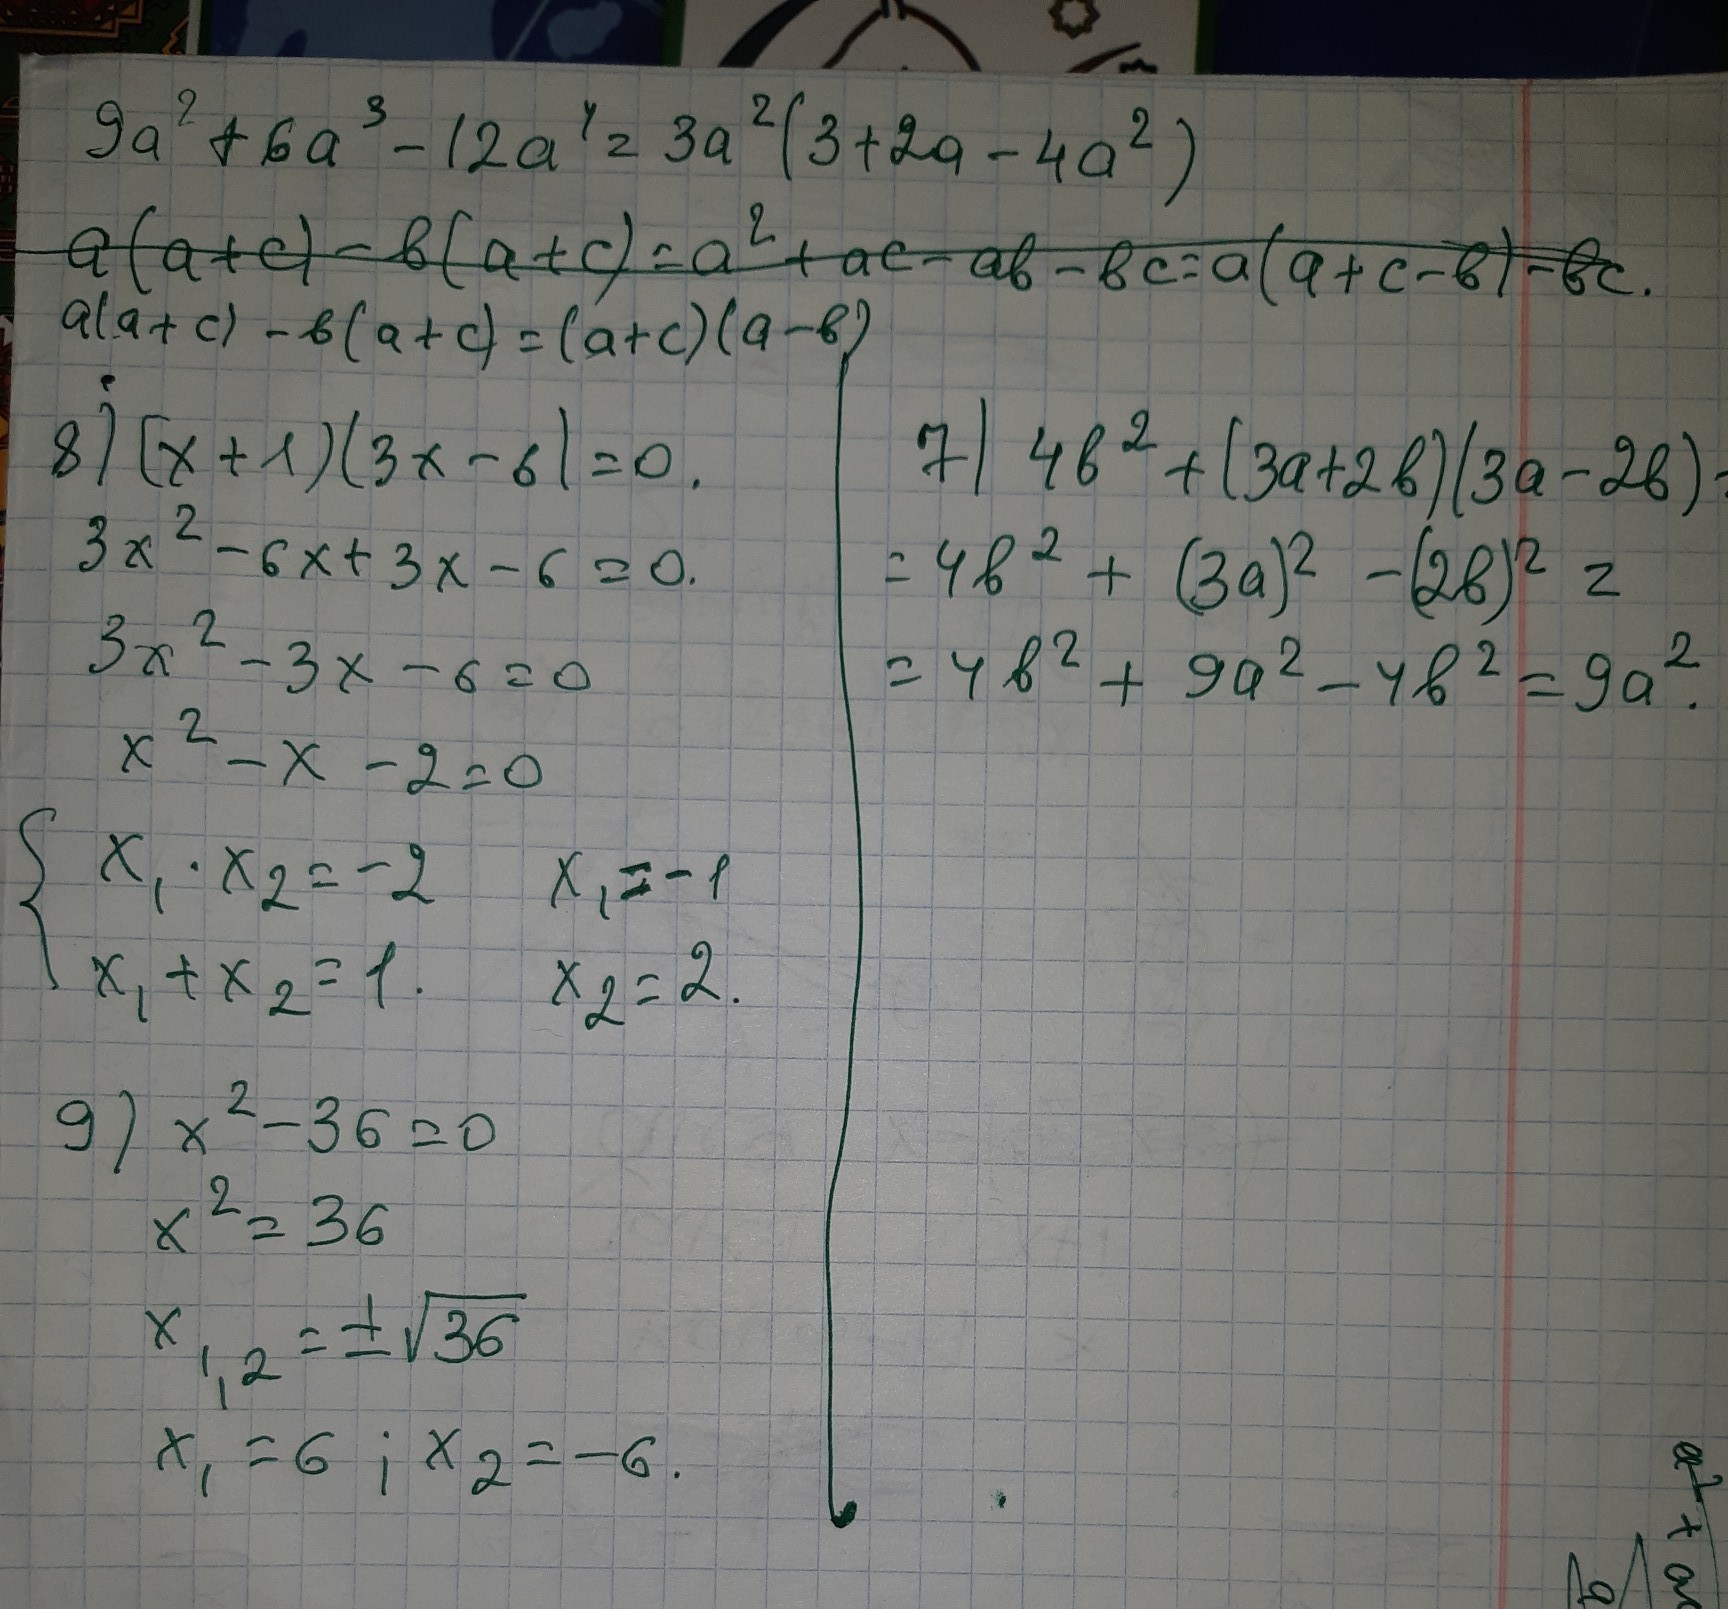 9a² + 6a³ - 12a⁴ = 3a²(3 + 2a - 4a²)
a(a+c) - в(a+c) = a² + ac - aв - вc = a(a+c-в) - вc.
a(a+c) - в(a+c) = (a+c)(a-в)
8) (x+1)(3x-6) = 0.
3x² - 6x + 3x - 6 = 0.
3x² - 3x - 6 = 0
x² - x - 2 = 0
{ x₁ · x₂ = -2 x₁ = -1
x₁ + x₂ = 1. x₂ = 2.
9) x² - 36 = 0
x² = 36
x₁,₂ = ±√36
x₁ = 6 ; x₂ = -6.
7) 4в² + (3a+2в)(3a-2в) =
= 4в² + (3a)² - (2в)² =
= 4в² + 9a² - 4в² = 9a².